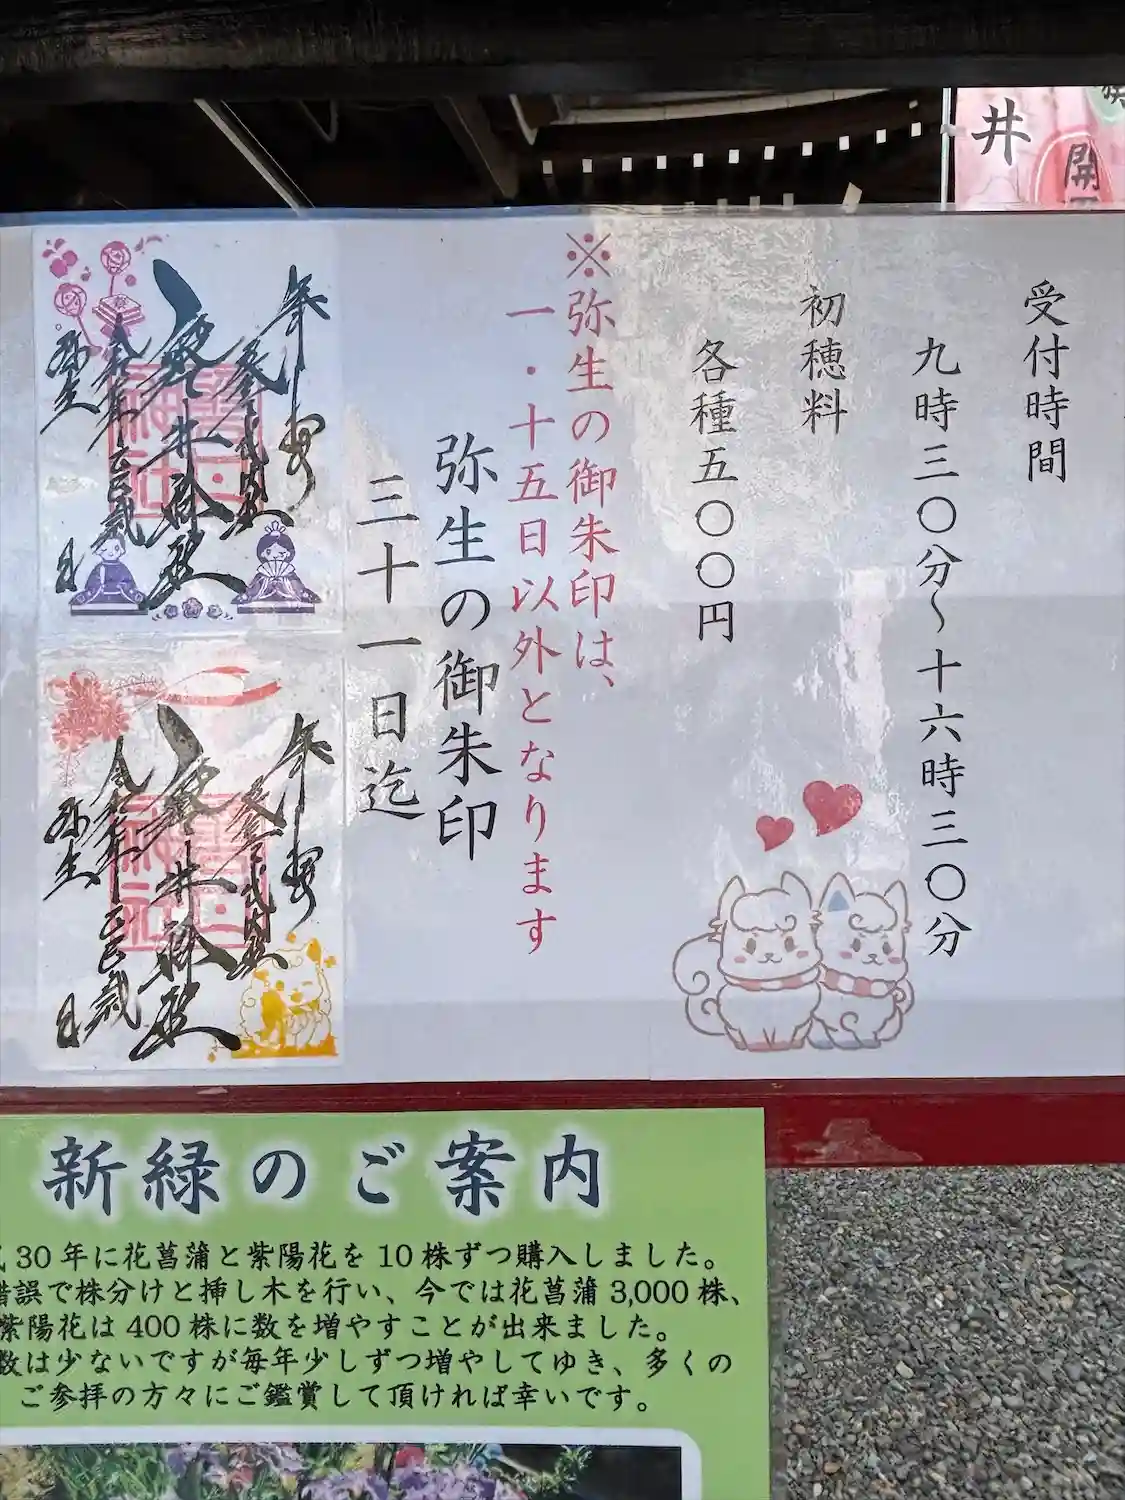 井
開
受付時間
九時三〇分～十六時三〇分
初穂料
各種五〇〇円
※弥生の御朱印は、
一・十五日以外となります
弥生の御朱印
三十一日迄
弥生
弥生
新緑のご案内
30年に花菖蒲と紫陽花を10株ずつ購入しました。
錯誤で株分けと挿し木を行い、今では花菖蒲3,000株、
紫陽花は400株に数を増やすことが出来ました。
数は少ないですが毎年少しずつ増やしてゆき、多くの
ご参拝の方々にご鑑賞して頂ければ幸いです。